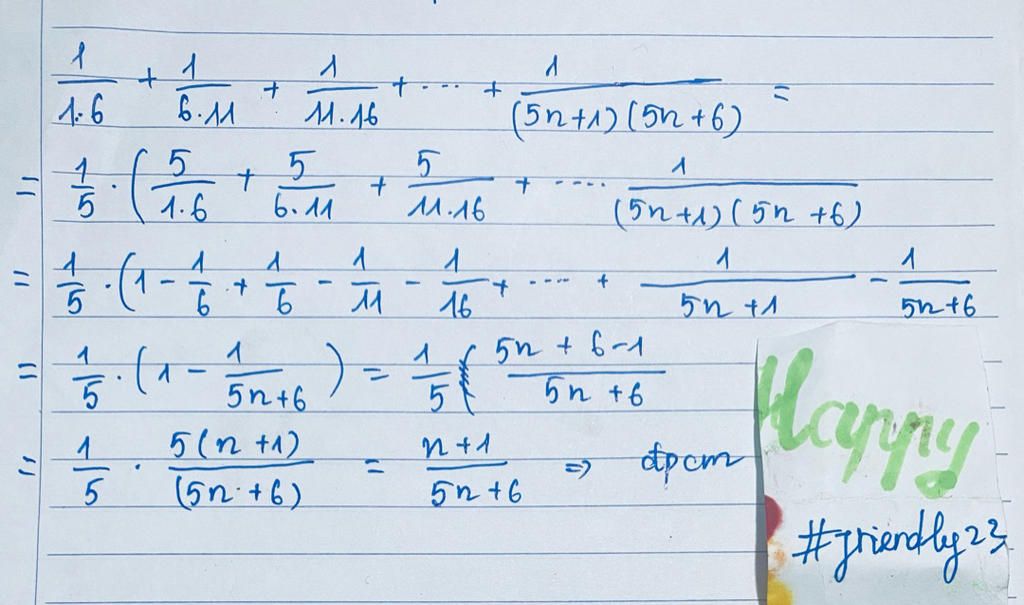 1/(1.6) + 1/(6.11) + 1/(11.16) + .... + 1/((5n+1)(5n+6)) =
= 1/5 . (5/(1.6) + 5/(6.11) + 5/(11.16) + .... 1/((5n+1)(5n+6))
= 1/5 . (1 - 1/6 + 1/6 - 1/11 - 1/16 + .... + 1/(5n+1) - 1/(5n+6)
= 1/5 . (1 - 1/(5n+6)) = 1/5 ( (5n+6-1)/(5n+6)
= 1/5 . 5(n+1)/(5n+6) = (n+1)/(5n+6) => đpcm
Happy
#friendly23